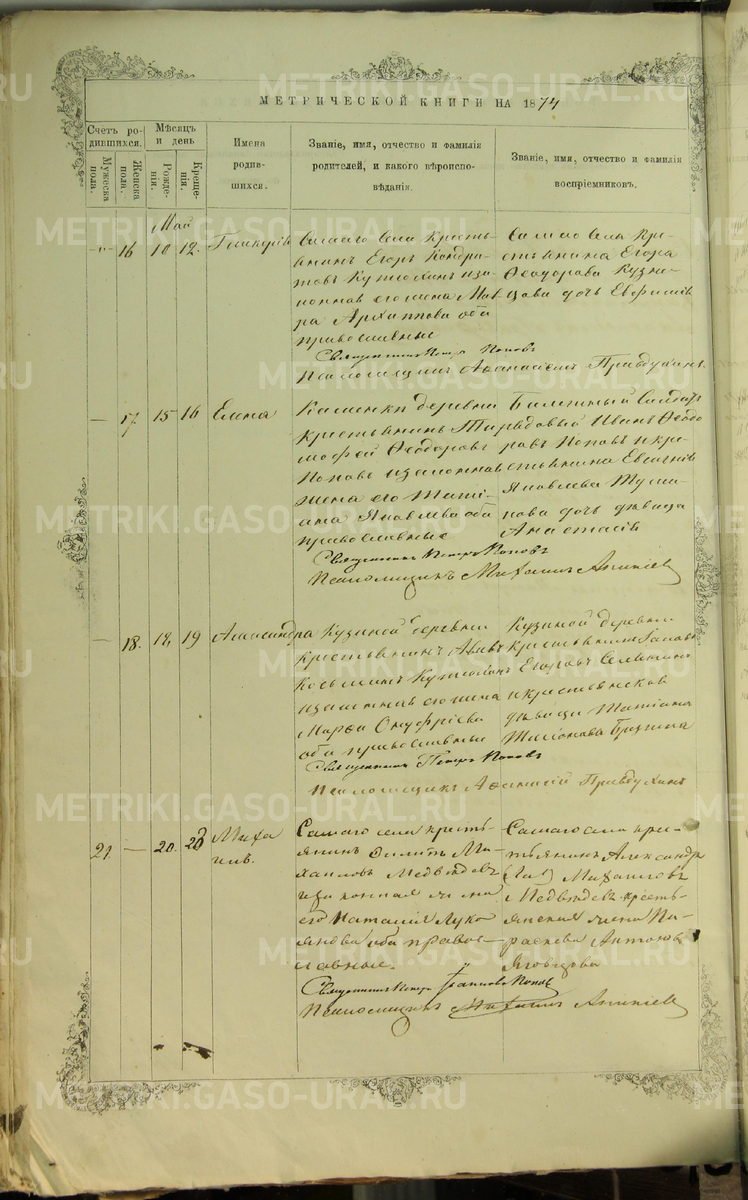 МЕТРИЧЕСКОЙ КНИГИ НА 1874
Счетъ ро-
дившихся.
Мужеска
пола.
Женска
пола.
Мѣсяцъ
и день
Рожде-
нія.
Креще-
нія.
Имена
родив-
шихся.
Званіе, имя, отчество и фамилія
родителей, и какого вѣроиспо-
вѣданія.
Званіе, имя, отчество и фамилія
воспріемниковъ.
Май
16 10 12. Гликерія
Самаго села кресть-
янинъ Егоръ Кондра-
товъ
законная его жена Мав-
ра Архиппова оба
православные
Самаго села кре-
стьянина Егора
Феодорова Кузне-
цова дочь Евфимія
Священникъ Петръ Поповъ
Псаломщикъ Афанасій Правдухинъ
17. 15 16 Елена
Каменки деревни
крестьянинъ Ти-
мофей Феодоровъ
Поповъ и законная
жена его Тати-
ана Яковлева оба
православные
Билетный
рядовый Иванъ Феодо-
ровъ Поповъ и кре-
стьянина Евгенія
Яковлева
дочь дѣвица
Анастасія
Священникъ Петръ Поповъ
Псаломщикъ Михаилъ Аникіевъ
18. 18 19 Александра
Кузиной деревни
крестьянинъ
Козьминъ
законная его жена
Марѳа Онуфріева
оба православные
Кузиной деревни
крестьянинъ
Егоровъ
и крестьянская
дѣвица Татіана
Священникъ Петръ Поповъ
Псаломщикъ Афанасій Правдухинъ
21. — 20. 23 Миха
илъ.
Самаго села кресть-
янинъ Ми-
хаиловъ Медвѣдевъ
и законная жена
его Наталія Луко
янова оба правос-
лавные.
Самаго села кре-
стьянинъ Александръ
Михаиловъ
Медвѣдевъ кресть-
янская жена Па-
раскева Антонов
Священникъ Петръ Іоанновъ Поповъ
Псаломщикъ Михаилъ Аникіевъ
METRIKI.GASO-URAL.RU